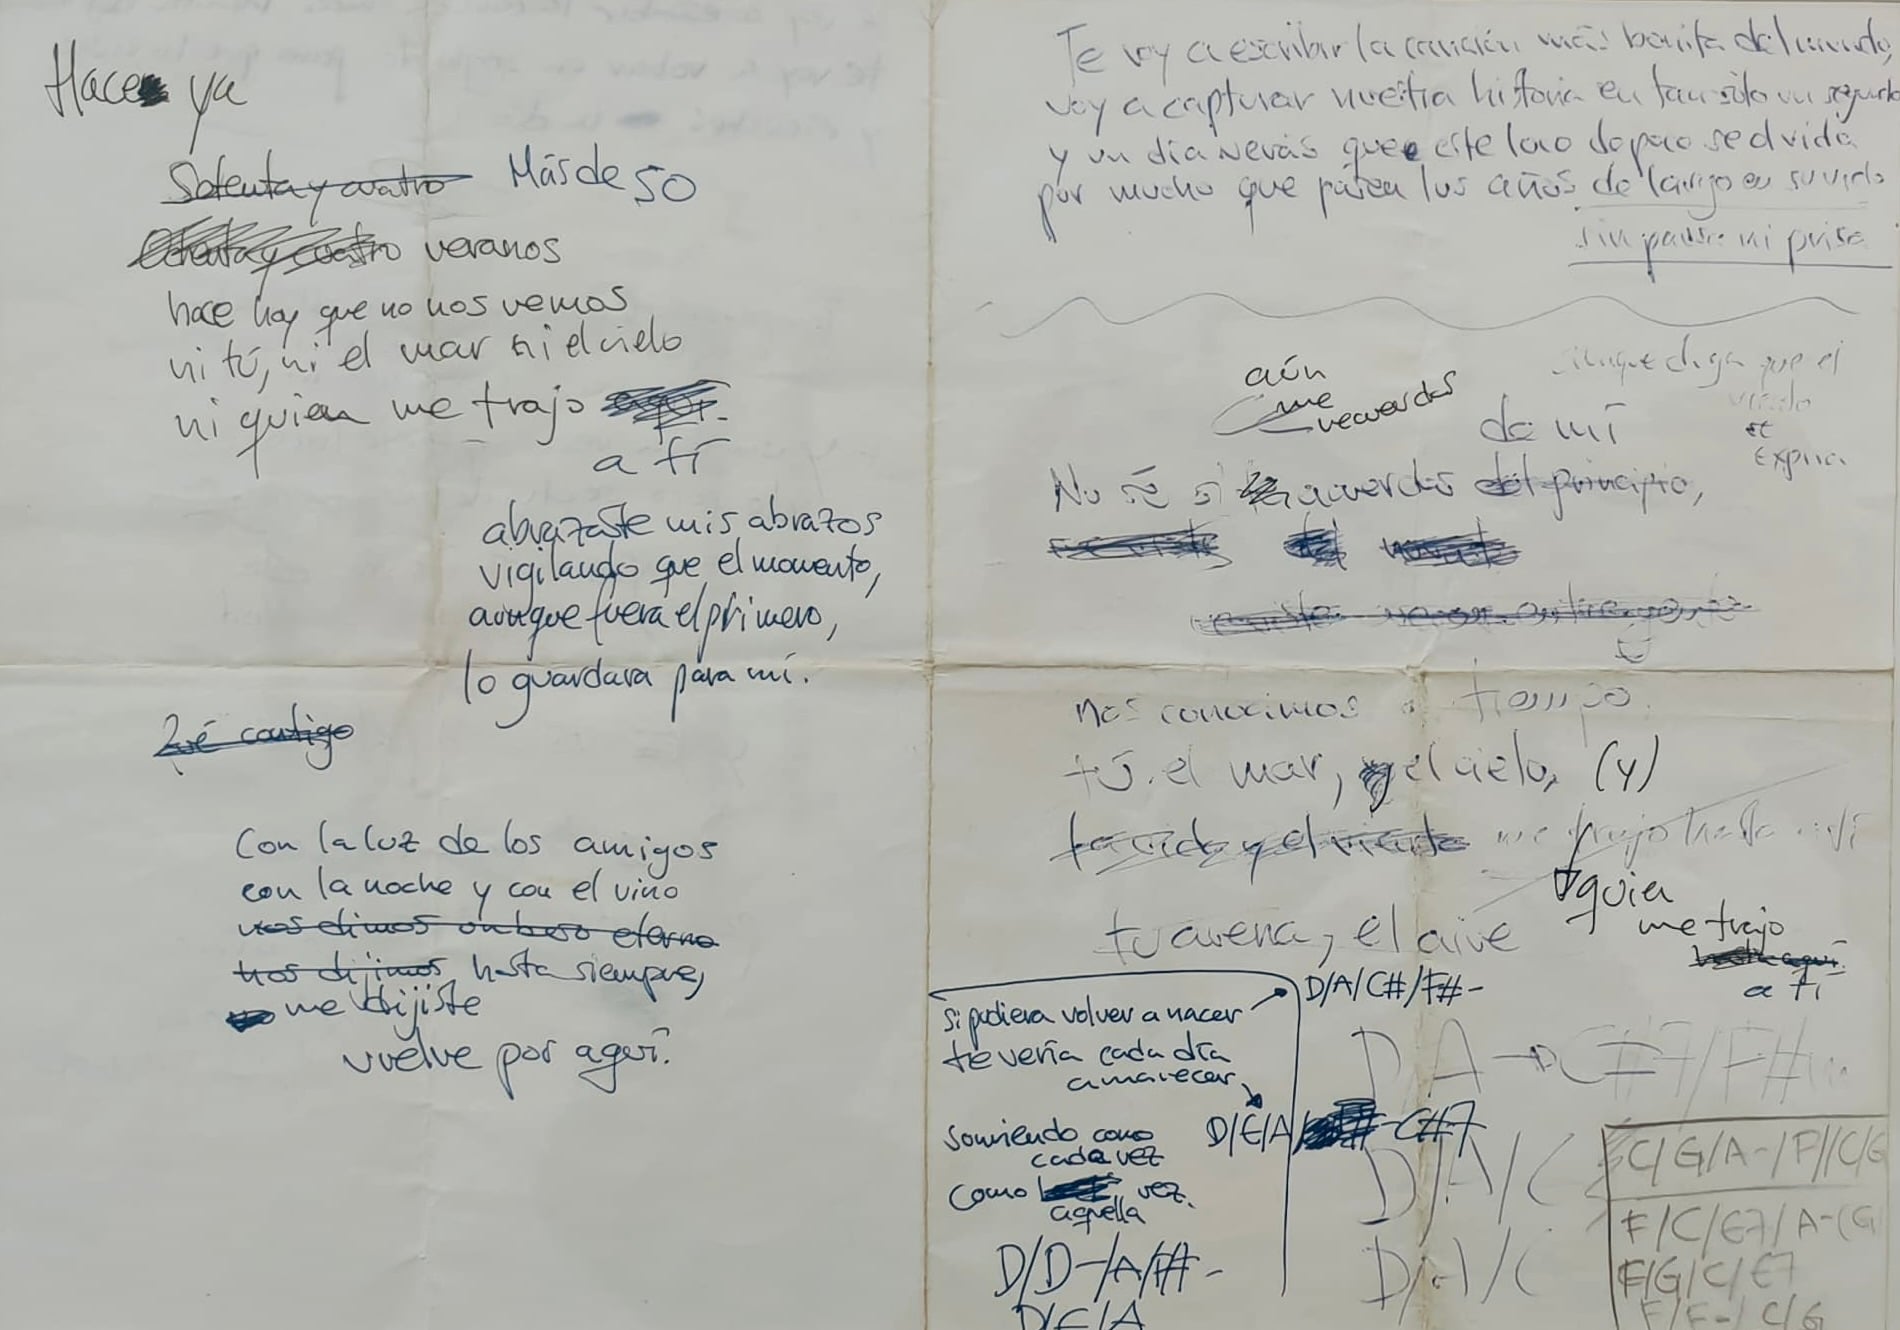 Hace ya
Setenta y cuatro Más de 50
Ochenta y cuatro veranos
hace hoy que no nos vemos
ni tú, ni el mar ni el cielo
ni quien me trajo aquí.
a tí
abrazaste mis abrazos
vigilando que el momento,
aunque fuera el primero,
lo guardara para mí.
contigo
Con la luz de los amigos
con la noche y con el vino
nos dimos un beso eterno
nos dijimos hasta siempre,
me dijiste
vuelve por aquí.
Te voy a escribir la canción más bonita del mundo,
voy a capturar nuestra historia en tan sólo un segundo
y un día verás que este loco de poco se olvida
por mucho que pasen los años de largo en su vida
sin pausa ni prisa
aún
me
recuerdas
aunque diga que el
viento
se
de mí
No sé si acuerdas del principio,
nos conocimos tiempo.
tú. el mar, y el cielo, (y)
y el viento me trajo hasta aquí
quien
me trajo
hasta aquí.
a tí
tu arena, el aire
D/A/C#/F#-
si pudiera volver a nacer
te vería cada día
amanecer,
D A → C#7/F#m
D/E/A/ C#7
sonriendo como
cada vez
como vez.
aquella
D/A/C
D/A/C
D/D-/A/F#-
D/E/A
C/G/A-/F//C/G
F/C/E7/A-(G
F/G/C/E7
F/F-/C/G